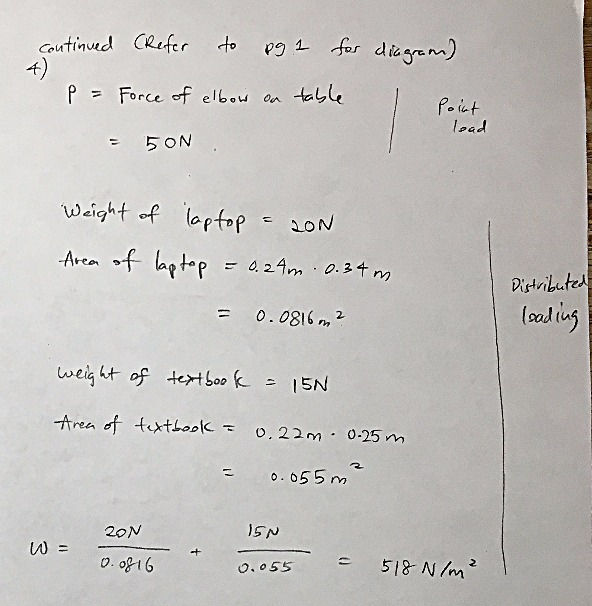 continued (Refer to pg 1 for diagram)
4)
P = Force of elbow on table
= 50N.
Point
load
Weight of laptop = 20N
Area of laptop = 0.24m · 0.34m
= 0.0816m²
Distributed
loading
Weight of textbook = 15N
Area of textbook = 0.22m · 0.25m
= 0.055m²
W = 20N/0.0816 + 15N/0.055 = 518 N/m²